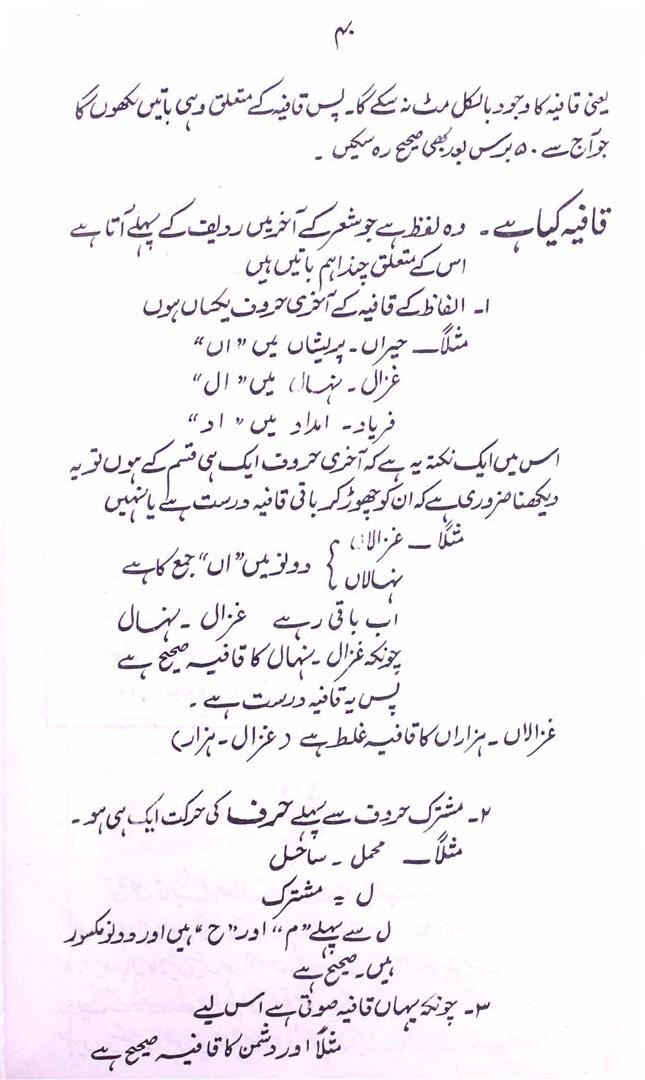 ۴۰
یعنی قافیہ کا وجود بالکل مٹ نہ سکے گا۔ پس قافیہ کے متعلق وہی باتیں لکھوں گا
جو آج سے ۵۰ برس بعد بھی صحیح رہ سکیں ۔
قافیہ کیا ہے ۔ وہ لفظ ہے جو شعر کے آخر میں ردیف کے پہلے آتا ہے
اس کے متعلق چند اہم باتیں ہیں
۱۔ الفاظ کے قافیہ کے آخری حروف یکساں ہوں
مثلاً ــ حیراں ۔ پریشاں میں "اں"
غزال ۔ نہال میں "ال"
فریاد ۔ امداد میں "اد"
اس میں ایک نکتہ یہ ہے کہ آخری حروف ایک ہی قسم کے ہوں تو یہ
دیکھنا ضروری ہے کہ ان کو چھوڑ کر باقی قافیہ درست ہے یا نہیں
مثلاً ــ غزالاں
نہالاں } دونو میں "اں" جمع کا ہے
اب باقی رہے غزال ۔ نہال
چونکہ غزال ۔ نہال کا قافیہ صحیح ہے
پس یہ قافیہ درست ہے ۔
غزالاں ۔ ہزاراں کا قافیہ غلط ہے (غزال ۔ ہزار)
۲۔ مشترک حروف سے پہلے حرف کی حرکت ایک ہی ہو ۔
مثلاً ــ محمل ۔ ساحل
ل یہ مشترک
ل سے پہلے "م" اور "ح" ہیں اور دونو مکسور
ہیں ۔ صحیح ہے
۳۔ چونکہ یہاں قافیہ صوتی ہے اس لیے
مثلاً اور دشمن کا قافیہ صحیح ہے